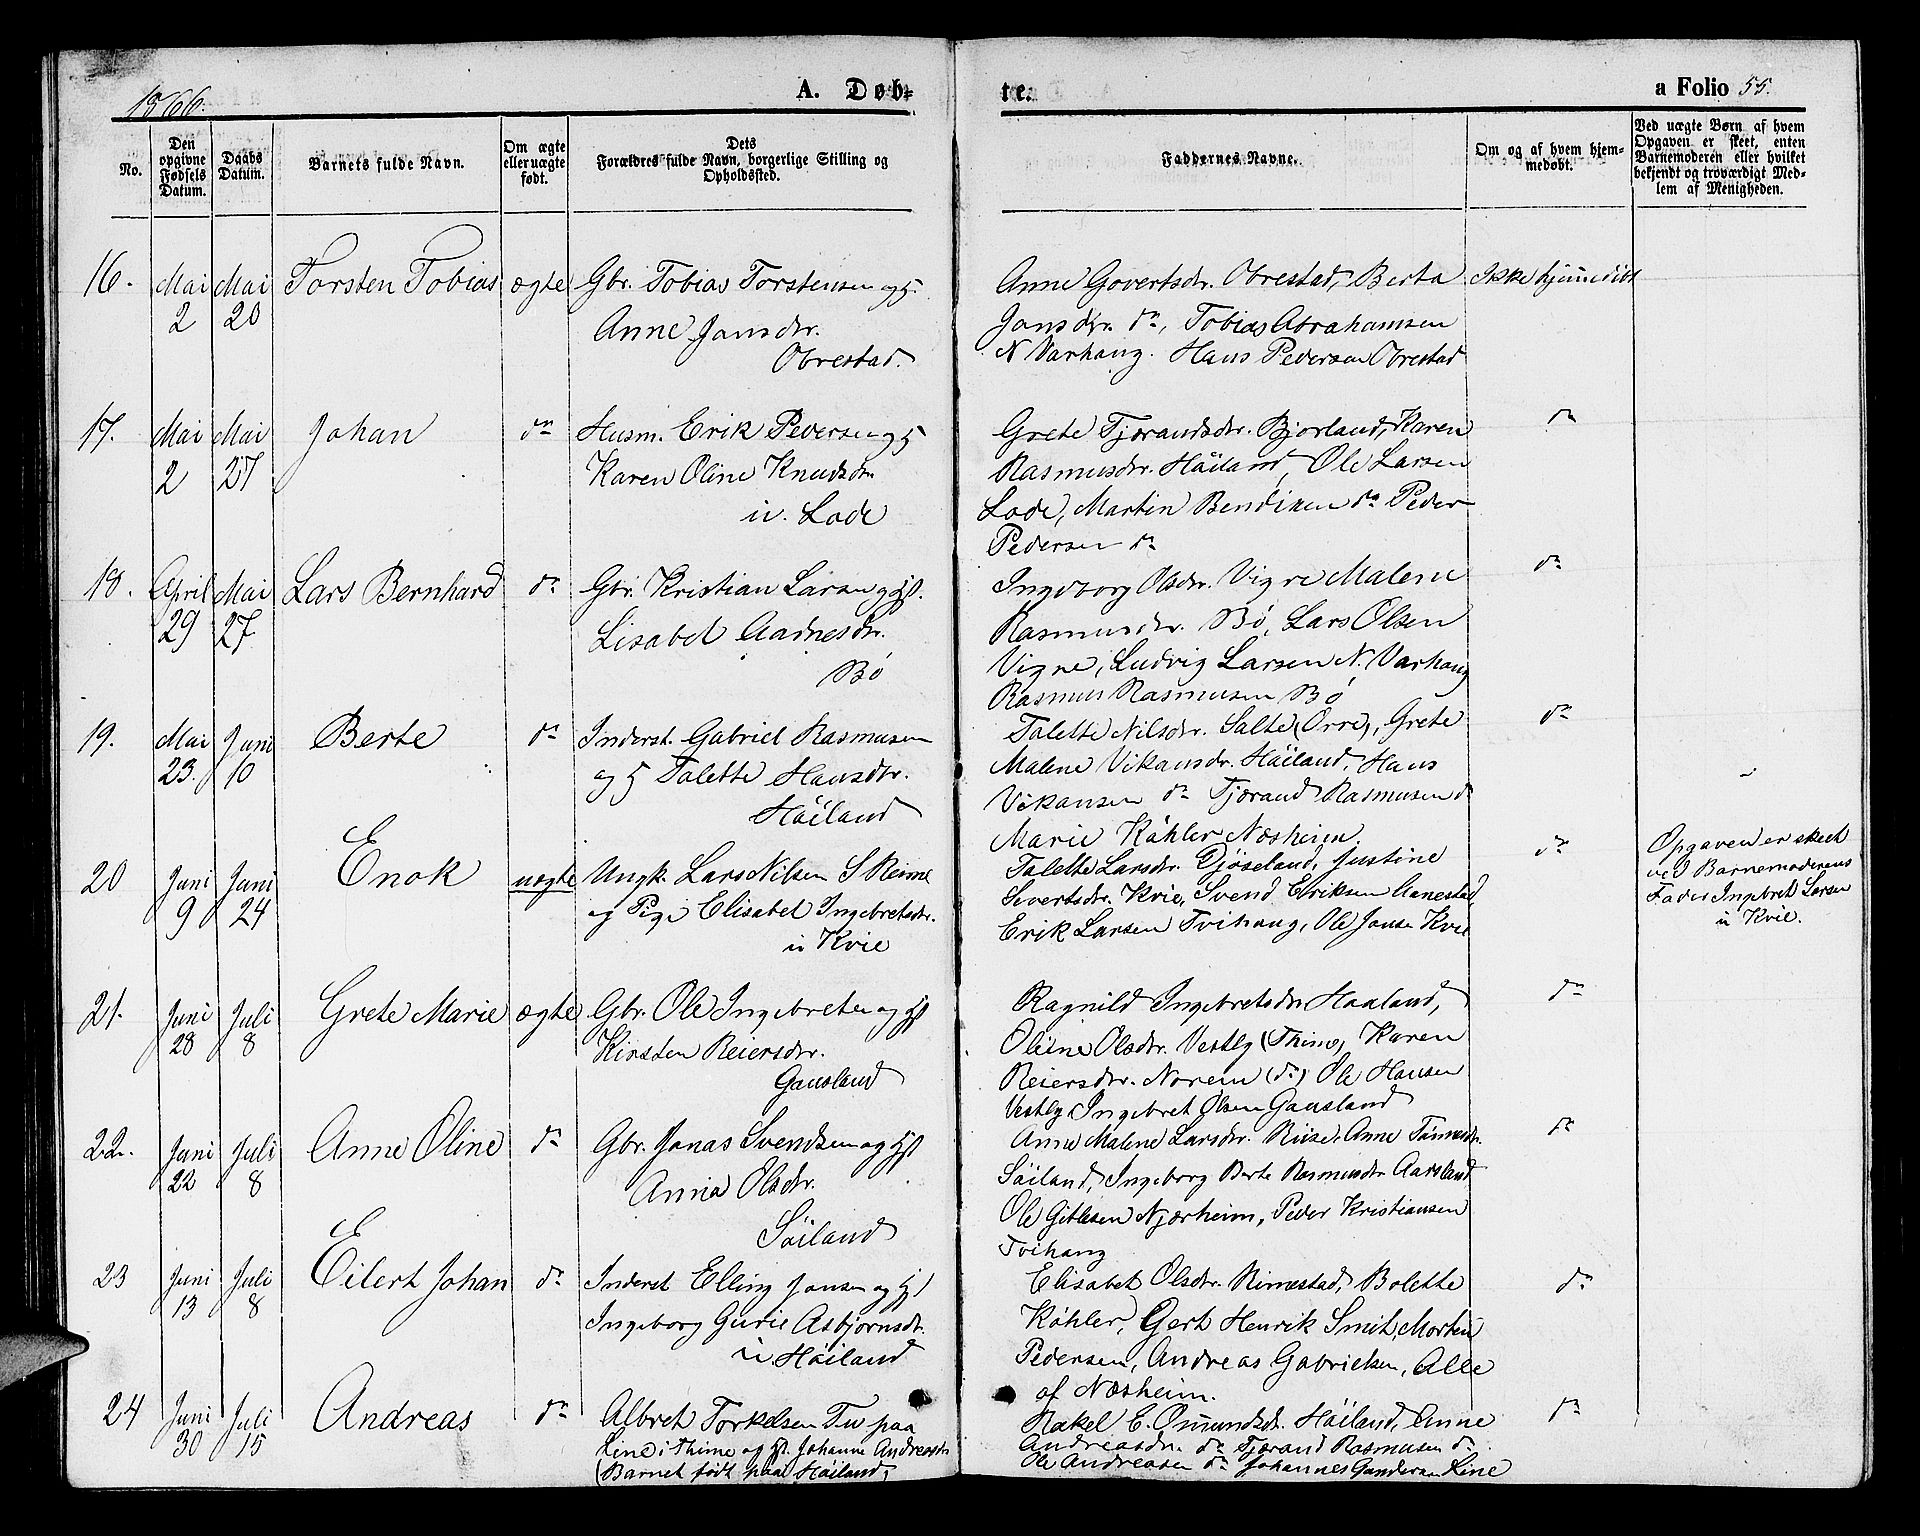 1866.
A. Døb=
te.
a Folio 55.
No.
Den opgivne Fødsels Datum.
Daabs Datum.
Barnets fulde Navn.
Om ægte eller uægte født.
Dets Forældres fulde Navn, borgerlige Stilling og Opholdssted.
Faddernes Navne.
Om og af hvem hjemmedøbt.
Ved uægte Børn af hvem Opgaven er skeet, enten Barnemoderen eller hvilket bekjendt og troværdigt Medlem af Menigheden.
16. Mai 2 Mai 20 Torsten Tobias ægte Gbr. Tobias Torstensen og H.
Anne Jonsdtr.
Obrestad.
Anne Govertsdr. Obrestad, Berta
Jonsdtr. do, Tobias Abrahamsen
N Varhaug. Hans Pedersen Obrestad
Ikke hjemmedøbt
17. Mai 2 Mai 27 Johan do Husm. Erik Pedersen og H
Karen Oline Knudsdr.
i Lode
Grete Tjørandsdtr. Bjorland, Karen
Rasmusdtr. Höiland, Ole Larsen
Lode, Martin Bendixen do Peder
Pedersen do
do
18. April 29 Mai 27 Lars Bernhard do Gbr. Kristian Larsen og Hst.
Lisabet Aadnesdtr.
Bø
Ingeborg Olsdtr. Vigre Malene
Rasmusdtr. Bø, Lars Olsen
Vigre, Ludvig Larsen N. Varhaug
Rasmus Rasmusen Bø
do
19. Mai 23. Juni 10 Berte do Inderst. Gabriel Rasmusen
og H Talette Hansdtr.
Höiland
Talette Nilsdtr. Salte (Orre), Grete
Malene Vikansdr. Höiland, Hans
Vikansen do Tjørand Rasmusen do
do
20 Juni 9 Juni 24 Enok uægte Ungk. Lars Nilsen S Reime
og Pige Elisabet Ingebretsdtr.
i Kvie
Marie Köhler Næsheim,
Talette Larsdtr. Djøseland, Justine
Severtsdtr. Kvie, Svend Eriksen Aanestad,
Erik Larsen Tvihaug, Ole Jonsen Kvie
do
Opgaven er skeet
ved Barnemoderens
Fader Ingebret Larsen
i Kvie.
21. Juni 28 Juli 8 Grete Marie ægte Gbr. Ole Ingebretsen og Hst
Kirsten Reiersdtr.
Gausland
Ragnild Ingebretsdtr Haaland,
Oline Olsdtr. Vestly (Thime), Karen
Reiersdtr. Norem (do) Ole Hansen
Vestly, Ingebret Olsen Gausland
do
22. Juni 22 Juli 8 Anne Oline do Gbr. Jonas Svendsen og Hst
Anna Olsdtr.
Söiland
Anne Malene Larsdtr. Riise, Anne Tönnesdtr.
Söiland, Ingeborg Berte Rasmusdtr Aarsland
Ole Gitlesen Njærheim, Peder Kristiansen
Tvihaug
do
23 Juni 13 Juli 8 Eilert Johan do Inderst Elling Jonsen og Hst
Ingeborg Gurie Asbjørnsdtr.
i Höiland
Elisabet Olsdtr. Rimestad, Bolette
Köhler, Gert Henrik Smit, Morten
Pedersen, Andreas Gabrielsen, Alle
af Næsheim.
do
24 Juni 30 Juli 15 Andreas do Albret Torkelsen Tu paa
Line i Thime og H. Johanne Andreasdtr
(Barnet født paa Höiland)
Rakel E. Omundsdtr. Höiland, Anne
Andreasdtr. do Tjørand Rasmusen do
Ole Andreasen do Johannes Gundersen Line
do